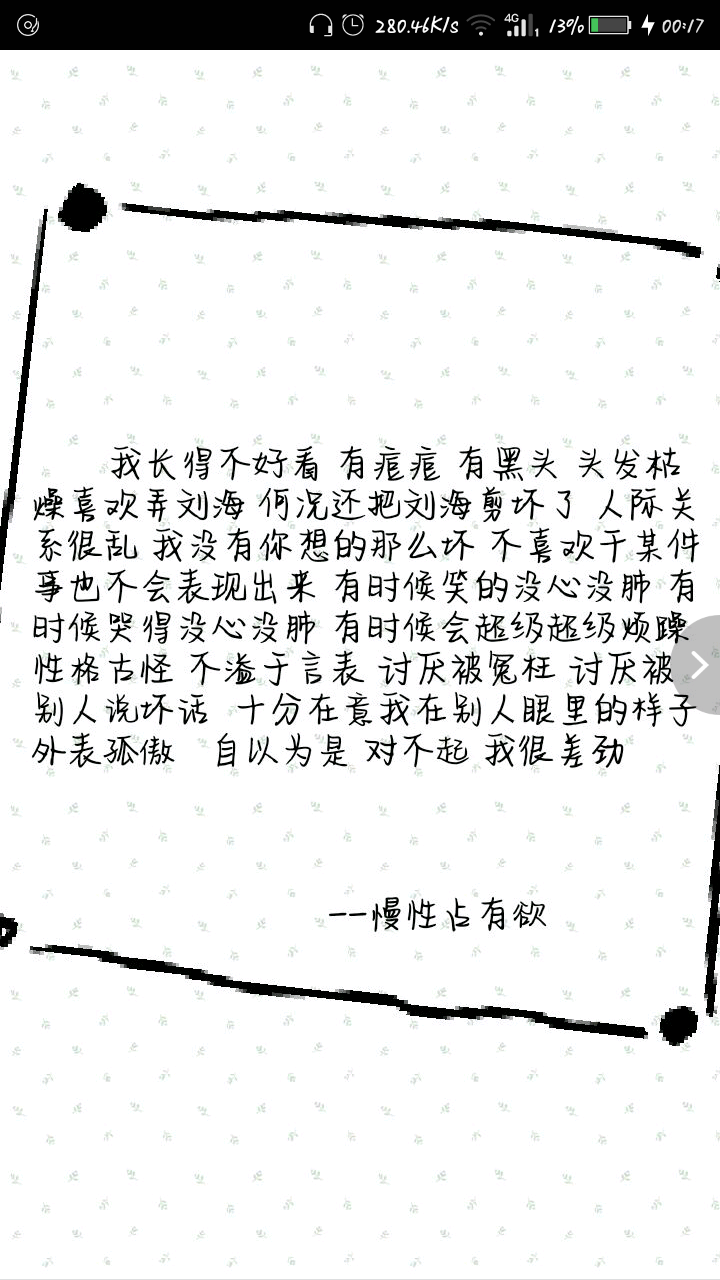 280.46K/s 4G 1 13% 00:17
我长得不好看 有痘痘 有黑头 头发枯
燥喜欢弄刘海 何况还把刘海剪坏了 人际关
系很乱 我没有你想的那么坏 不喜欢干某件
事也不会表现出来 有时候笑的没心没肺 有
时候哭得没心没肺 有时候会超级超级烦躁
性格古怪 不溢于言表 讨厌被冤枉 讨厌被
别人说坏话 十分在意我在别人眼里的样子
外表孤傲 自以为是 对不起 我很差劲
--慢性占有欲